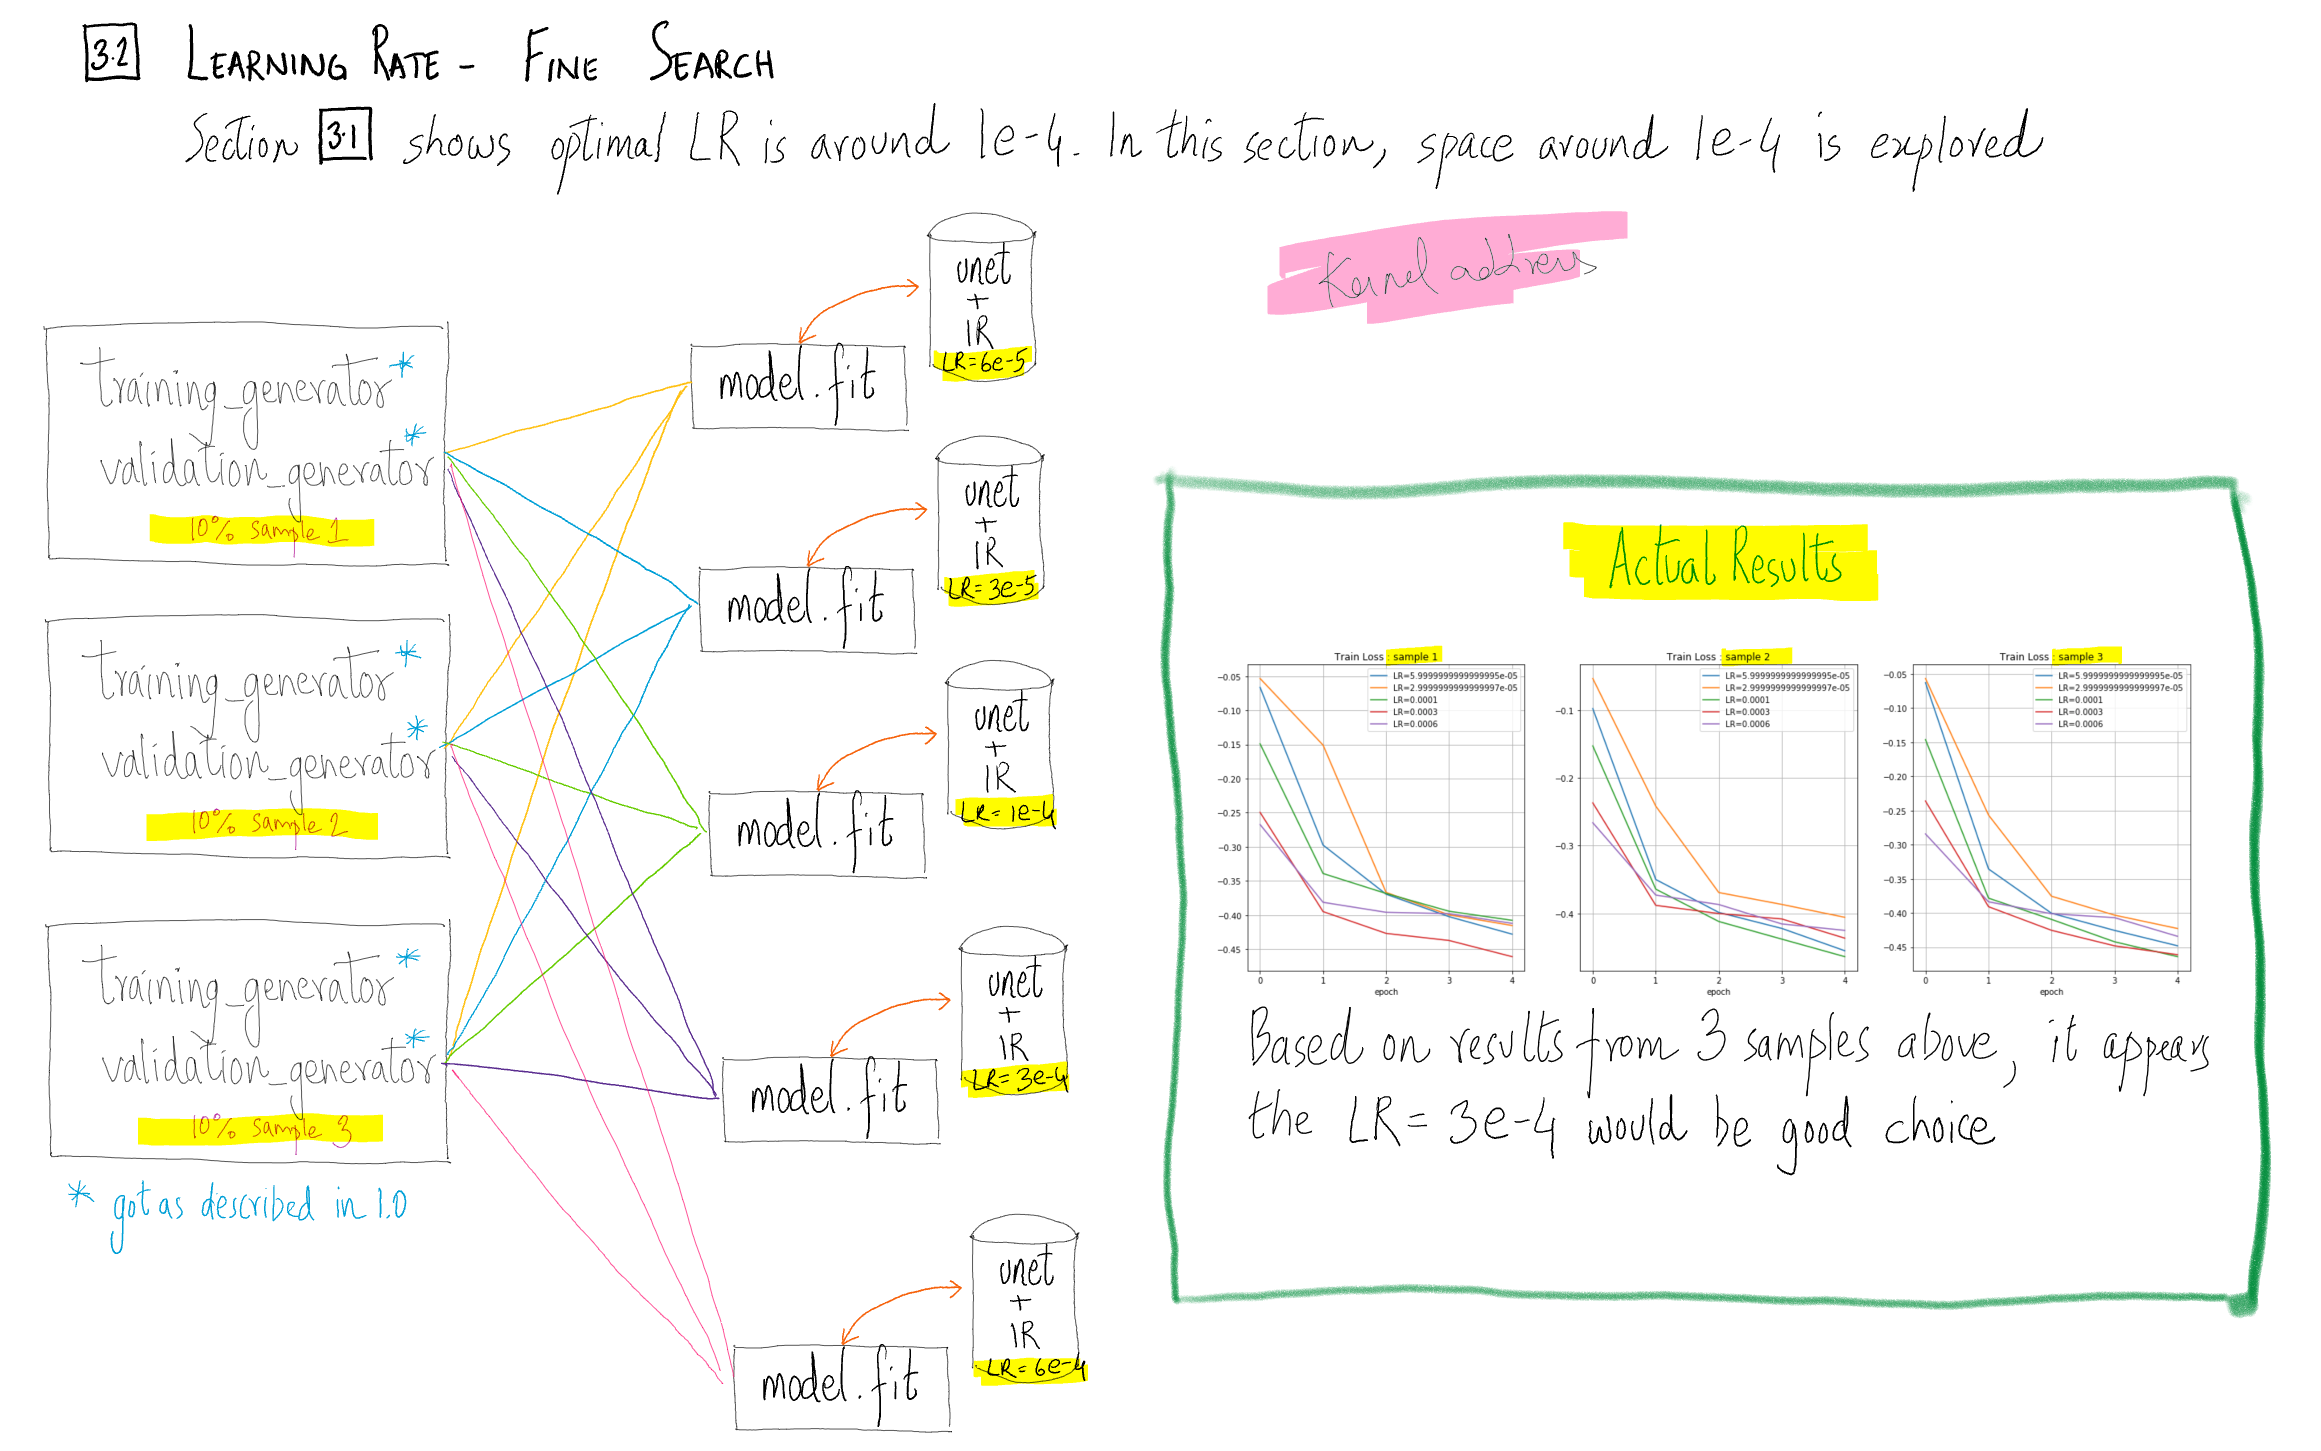 3.2 LEARNING RATE - FINE SEARCH
Section 3.1 shows optimal LR is around 1e-4. In this section, space around 1e-4 is explored
Kernel address
training_generator*
validation_generator*
10% sample 1
training_generator*
validation_generator*
10% sample 2
training_generator*
validation_generator*
10% sample 3
* got as described in 1.0
model.fit
unet
+
IR
LR=6e-5
model.fit
unet
+
IR
LR=3e-5
model.fit
unet
+
IR
LR=1e-4
model.fit
unet
+
IR
LR=3e-4
model.fit
unet
+
IR
LR=6e-4
Actual Results
Train Loss : sample 1
LR=5.9999999999999995e-05
LR=2.9999999999999997e-05
LR=0.0001
LR=0.0003
LR=0.0006
-0.05
-0.10
-0.15
-0.20
-0.25
-0.30
-0.35
-0.40
-0.45
0 1 2 3 4
epoch
Train Loss : sample 2
LR=5.9999999999999995e-05
LR=2.9999999999999997e-05
LR=0.0001
LR=0.0003
LR=0.0006
-0.1
-0.2
-0.3
-0.4
0 1 2 3 4
epoch
Train Loss : sample 3
LR=5.9999999999999995e-05
LR=2.9999999999999997e-05
LR=0.0001
LR=0.0003
LR=0.0006
-0.05
-0.10
-0.15
-0.20
-0.25
-0.30
-0.35
-0.40
-0.45
0 1 2 3 4
epoch
Based on results from 3 samples above, it appears
the LR = 3e-4 would be good choice